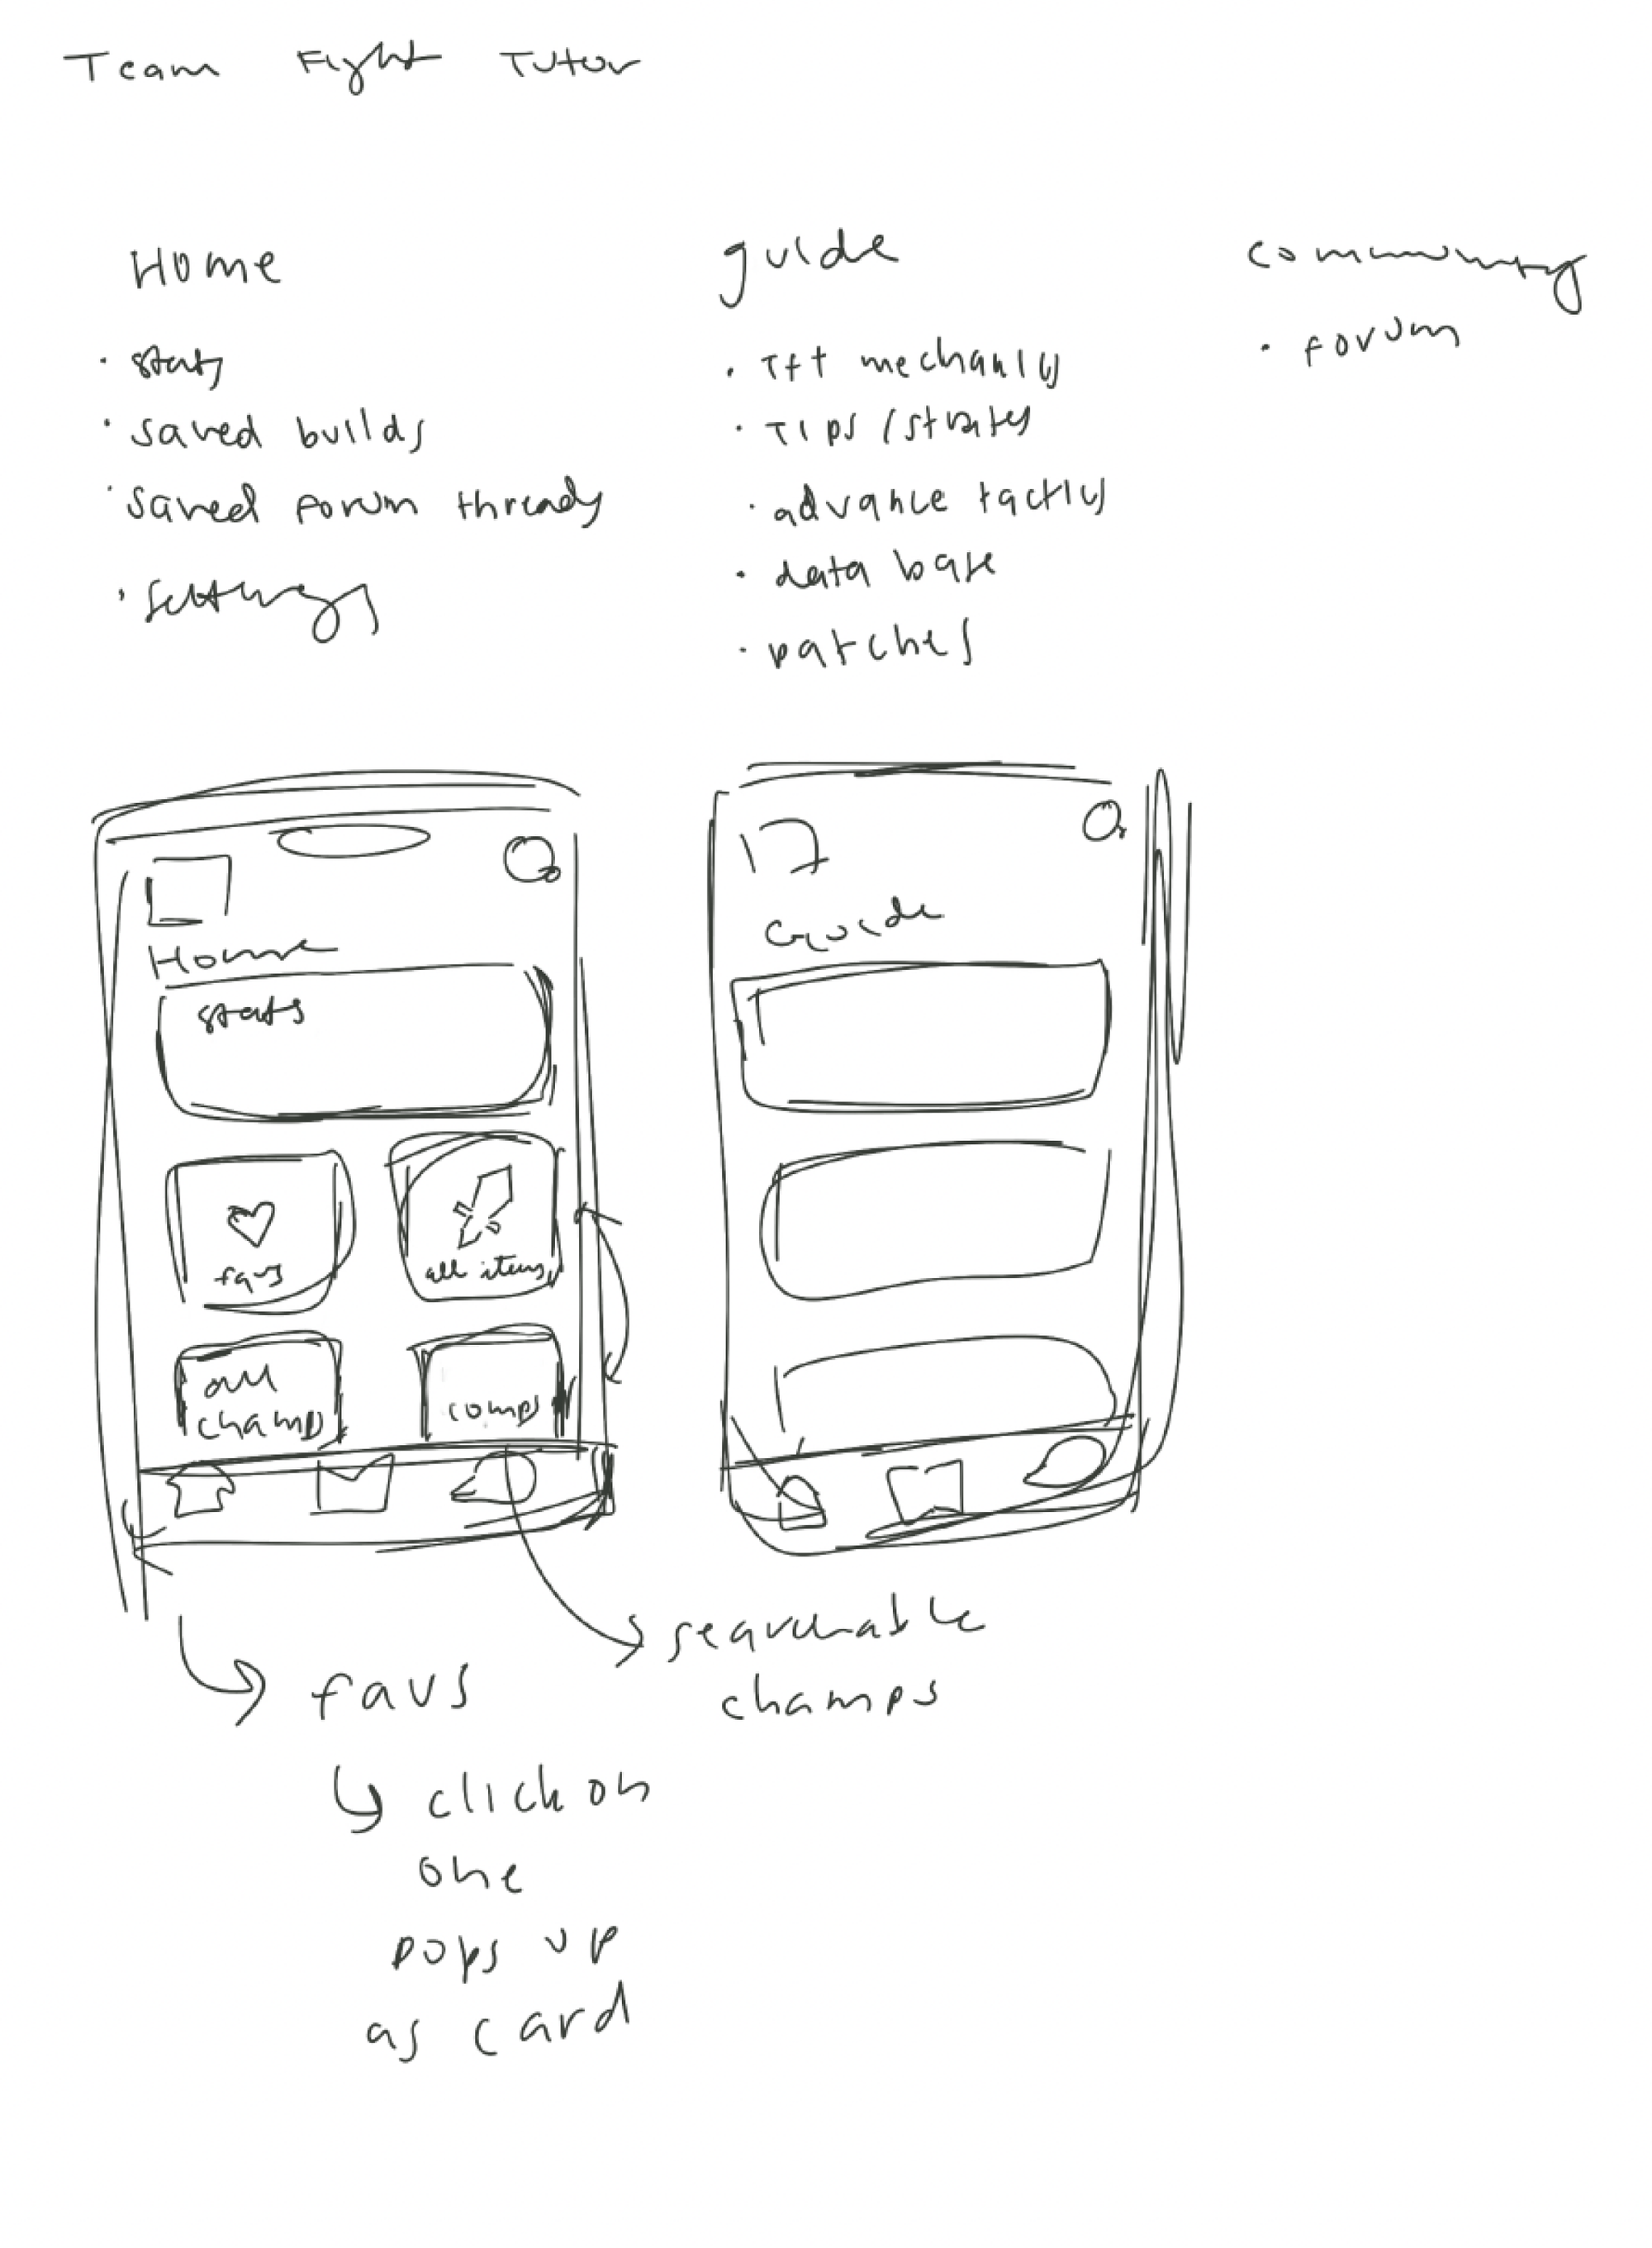 Team Fight Tutor
Home
· stats
· saved builds
· saved forum threads
· settings
guide
· TFT mechanics
· Tips / strategy
· advance tactics
· data base
· patches
community
· forum
Home
stats
favs
all items
all champs
comps
Guide
searchable
champs
favs
click on
one
pops up
as card